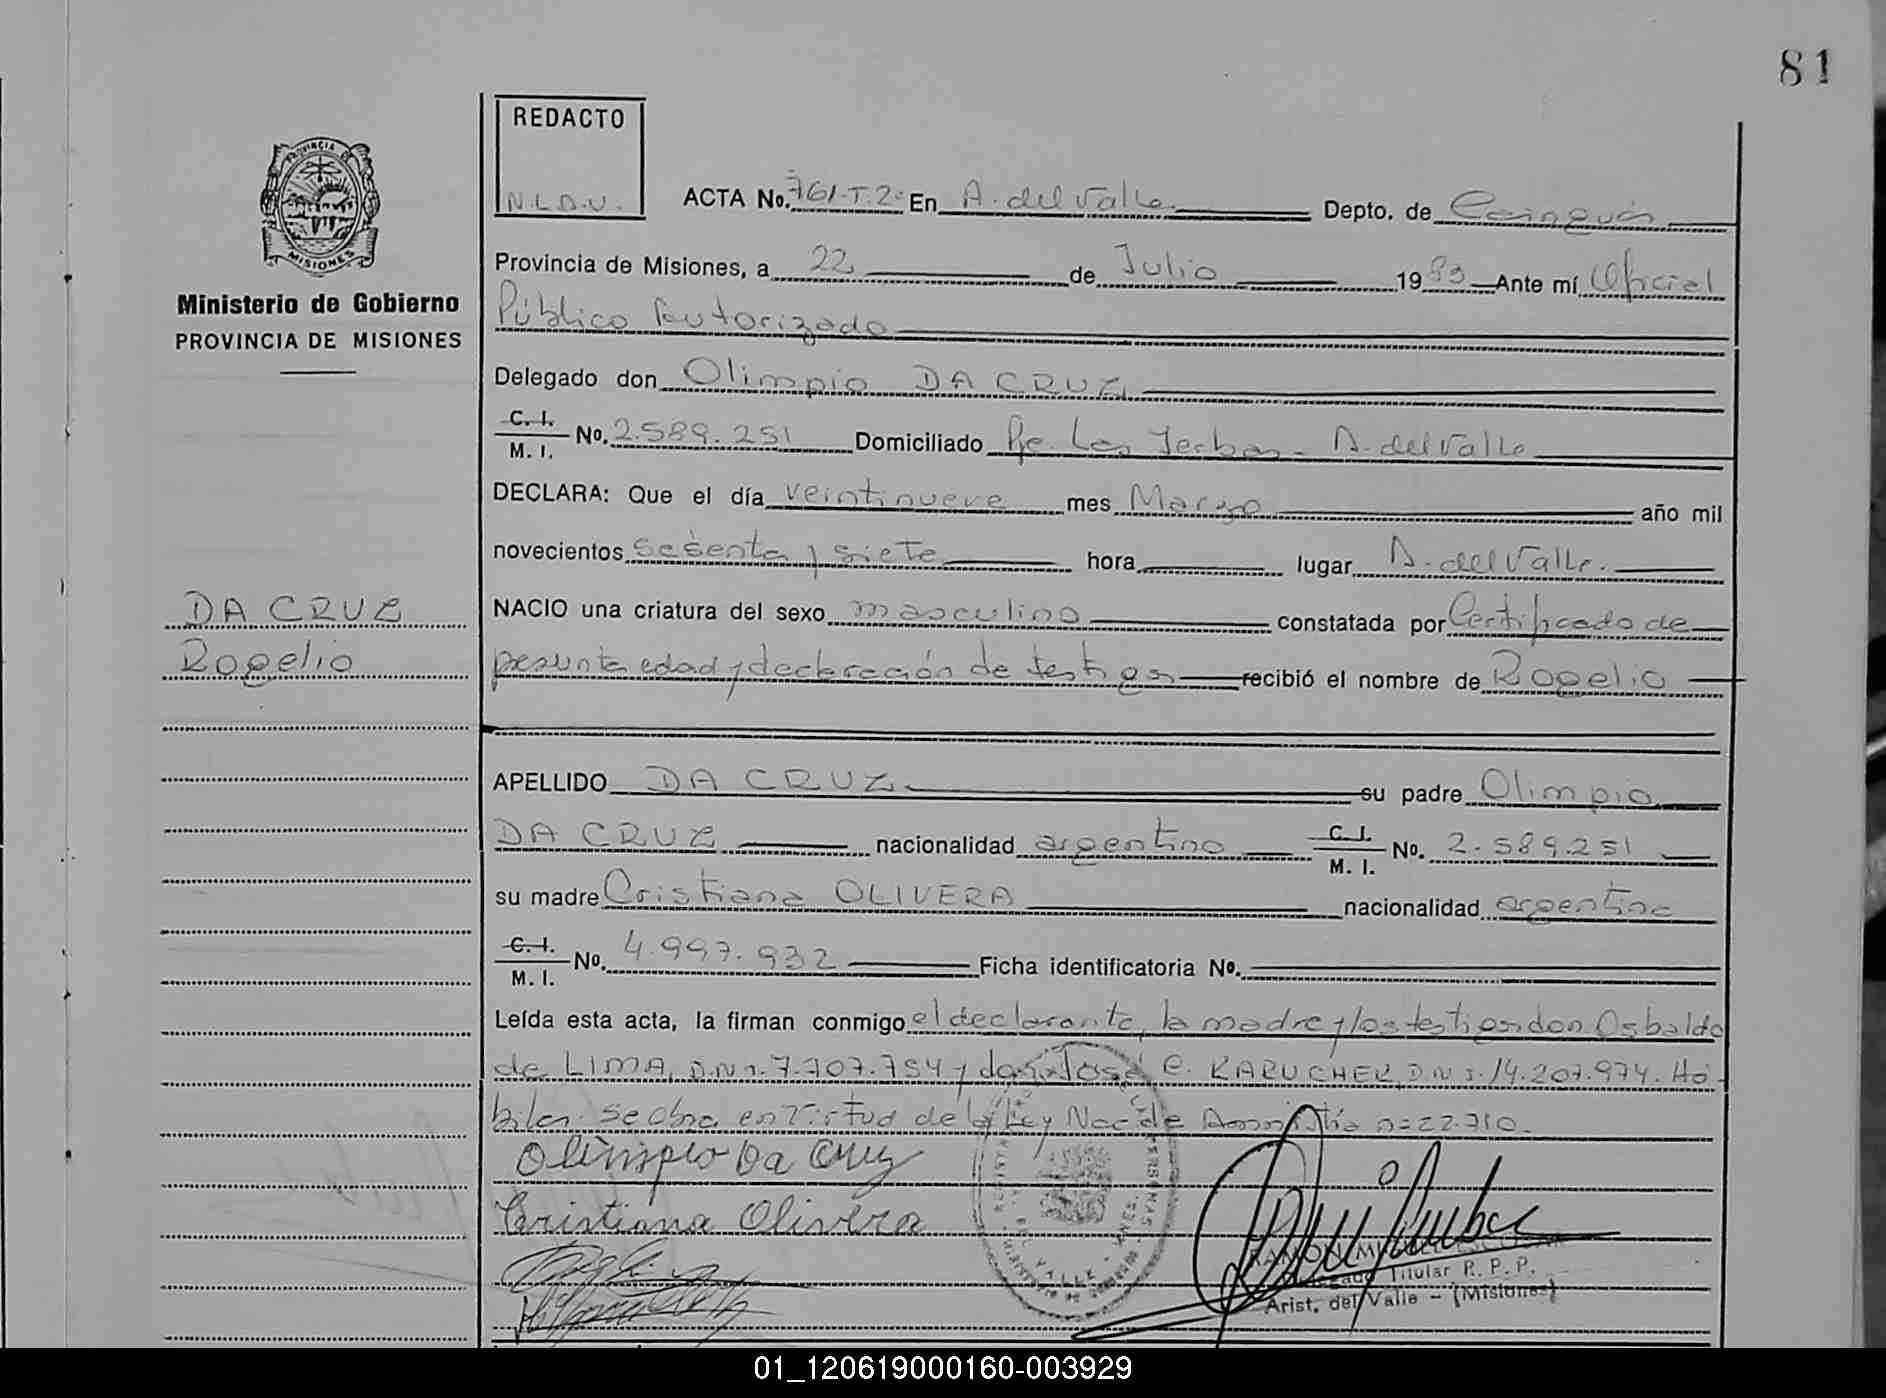 81
REDACTO
N.L.D.V.
ACTA No. 761-T.2º En A. del Valle Depto. de Cainguás
PROVINCIA DE
MISIONES
Provincia de Misiones, a 22 de Julio 1983 Ante mí Oficial
Ministerio de Gobierno
PROVINCIA DE MISIONES
Público Autorizado
Delegado don Olimpio DA CRUZ
C. I.
M. I. No. 2.589.251 Domiciliado Pje. Las Yerbas - A. del Valle
DECLARA: Que el día veintinueve mes Marzo año mil
novecientos sesenta y siete hora lugar A. del Valle.
DA CRUZ
Rogelio
NACIO una criatura del sexo masculino constatada por Certificado de
presunta edad y declaración de testigos recibió el nombre de Rogelio
APELLIDO DA CRUZ su padre Olimpio
DA CRUZ nacionalidad argentino C. I. M. I. No. 2.589.251
su madre Cristiana OLIVERA nacionalidad argentina
C. I.
M. I. No. 4.997.932 Ficha identificatoria No.
Leída esta acta, la firman conmigo el declarante, la madre y los testigos don Osbaldo
de LIMA, D.N.I. 7.707.754 y don José C. KARUCHEK, D.N.I. 14.207.974. Há-
biles. Se obra en virtud de la Ley Nac de Amnistía nº 22.710.
Olimpio Da Cruz
Cristiana Olivera
RAMON MIGUEL ESCOBAR
Delegado Titular R. P. P.
Arist. del Valle - (Misiones)
01_120619000160-003929